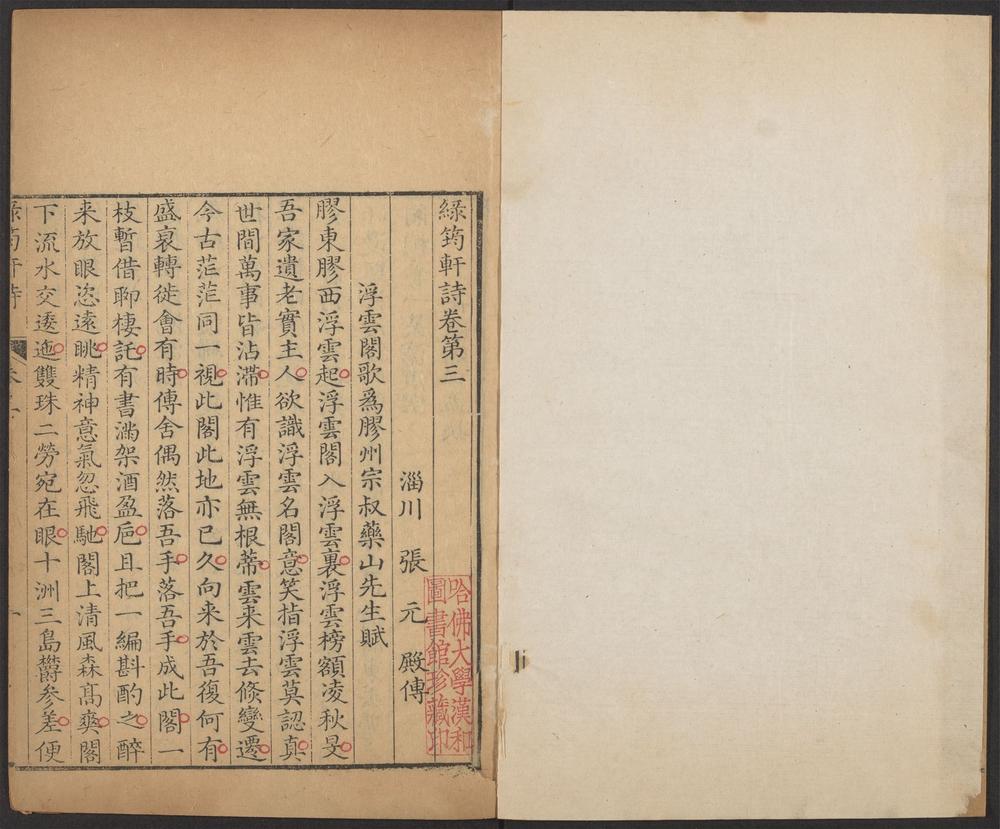 綠筠軒詩卷第三
淄川 張元 殿傳
浮雲閣歌爲膠州宗叔藥山先生賦
膠東膠西浮雲起浮雲閣入浮雲裏浮雲榜額凌秋旻
吾家遺老實主人欲識浮雲名閣意笑指浮雲莫認真
世間萬事皆沾滯惟有浮雲無根蒂雲来雲去倐變遷
今古茫茫同一視此閣此地亦已久向来於吾復何有
盛衰轉徙會有時傳舍偶然落吾手落吾手成此閣一
枝暫借聊棲託有書滿架酒盈巵且把一編斟酌之醉
来放眼恣遠眺精神意氣忽飛馳閣上清風森高爽閣
下流水交逶迤雙珠二勞宛在眼十洲三島欝參差便
綠筠軒詩
哈佛大學漢和
圖書館珍藏印